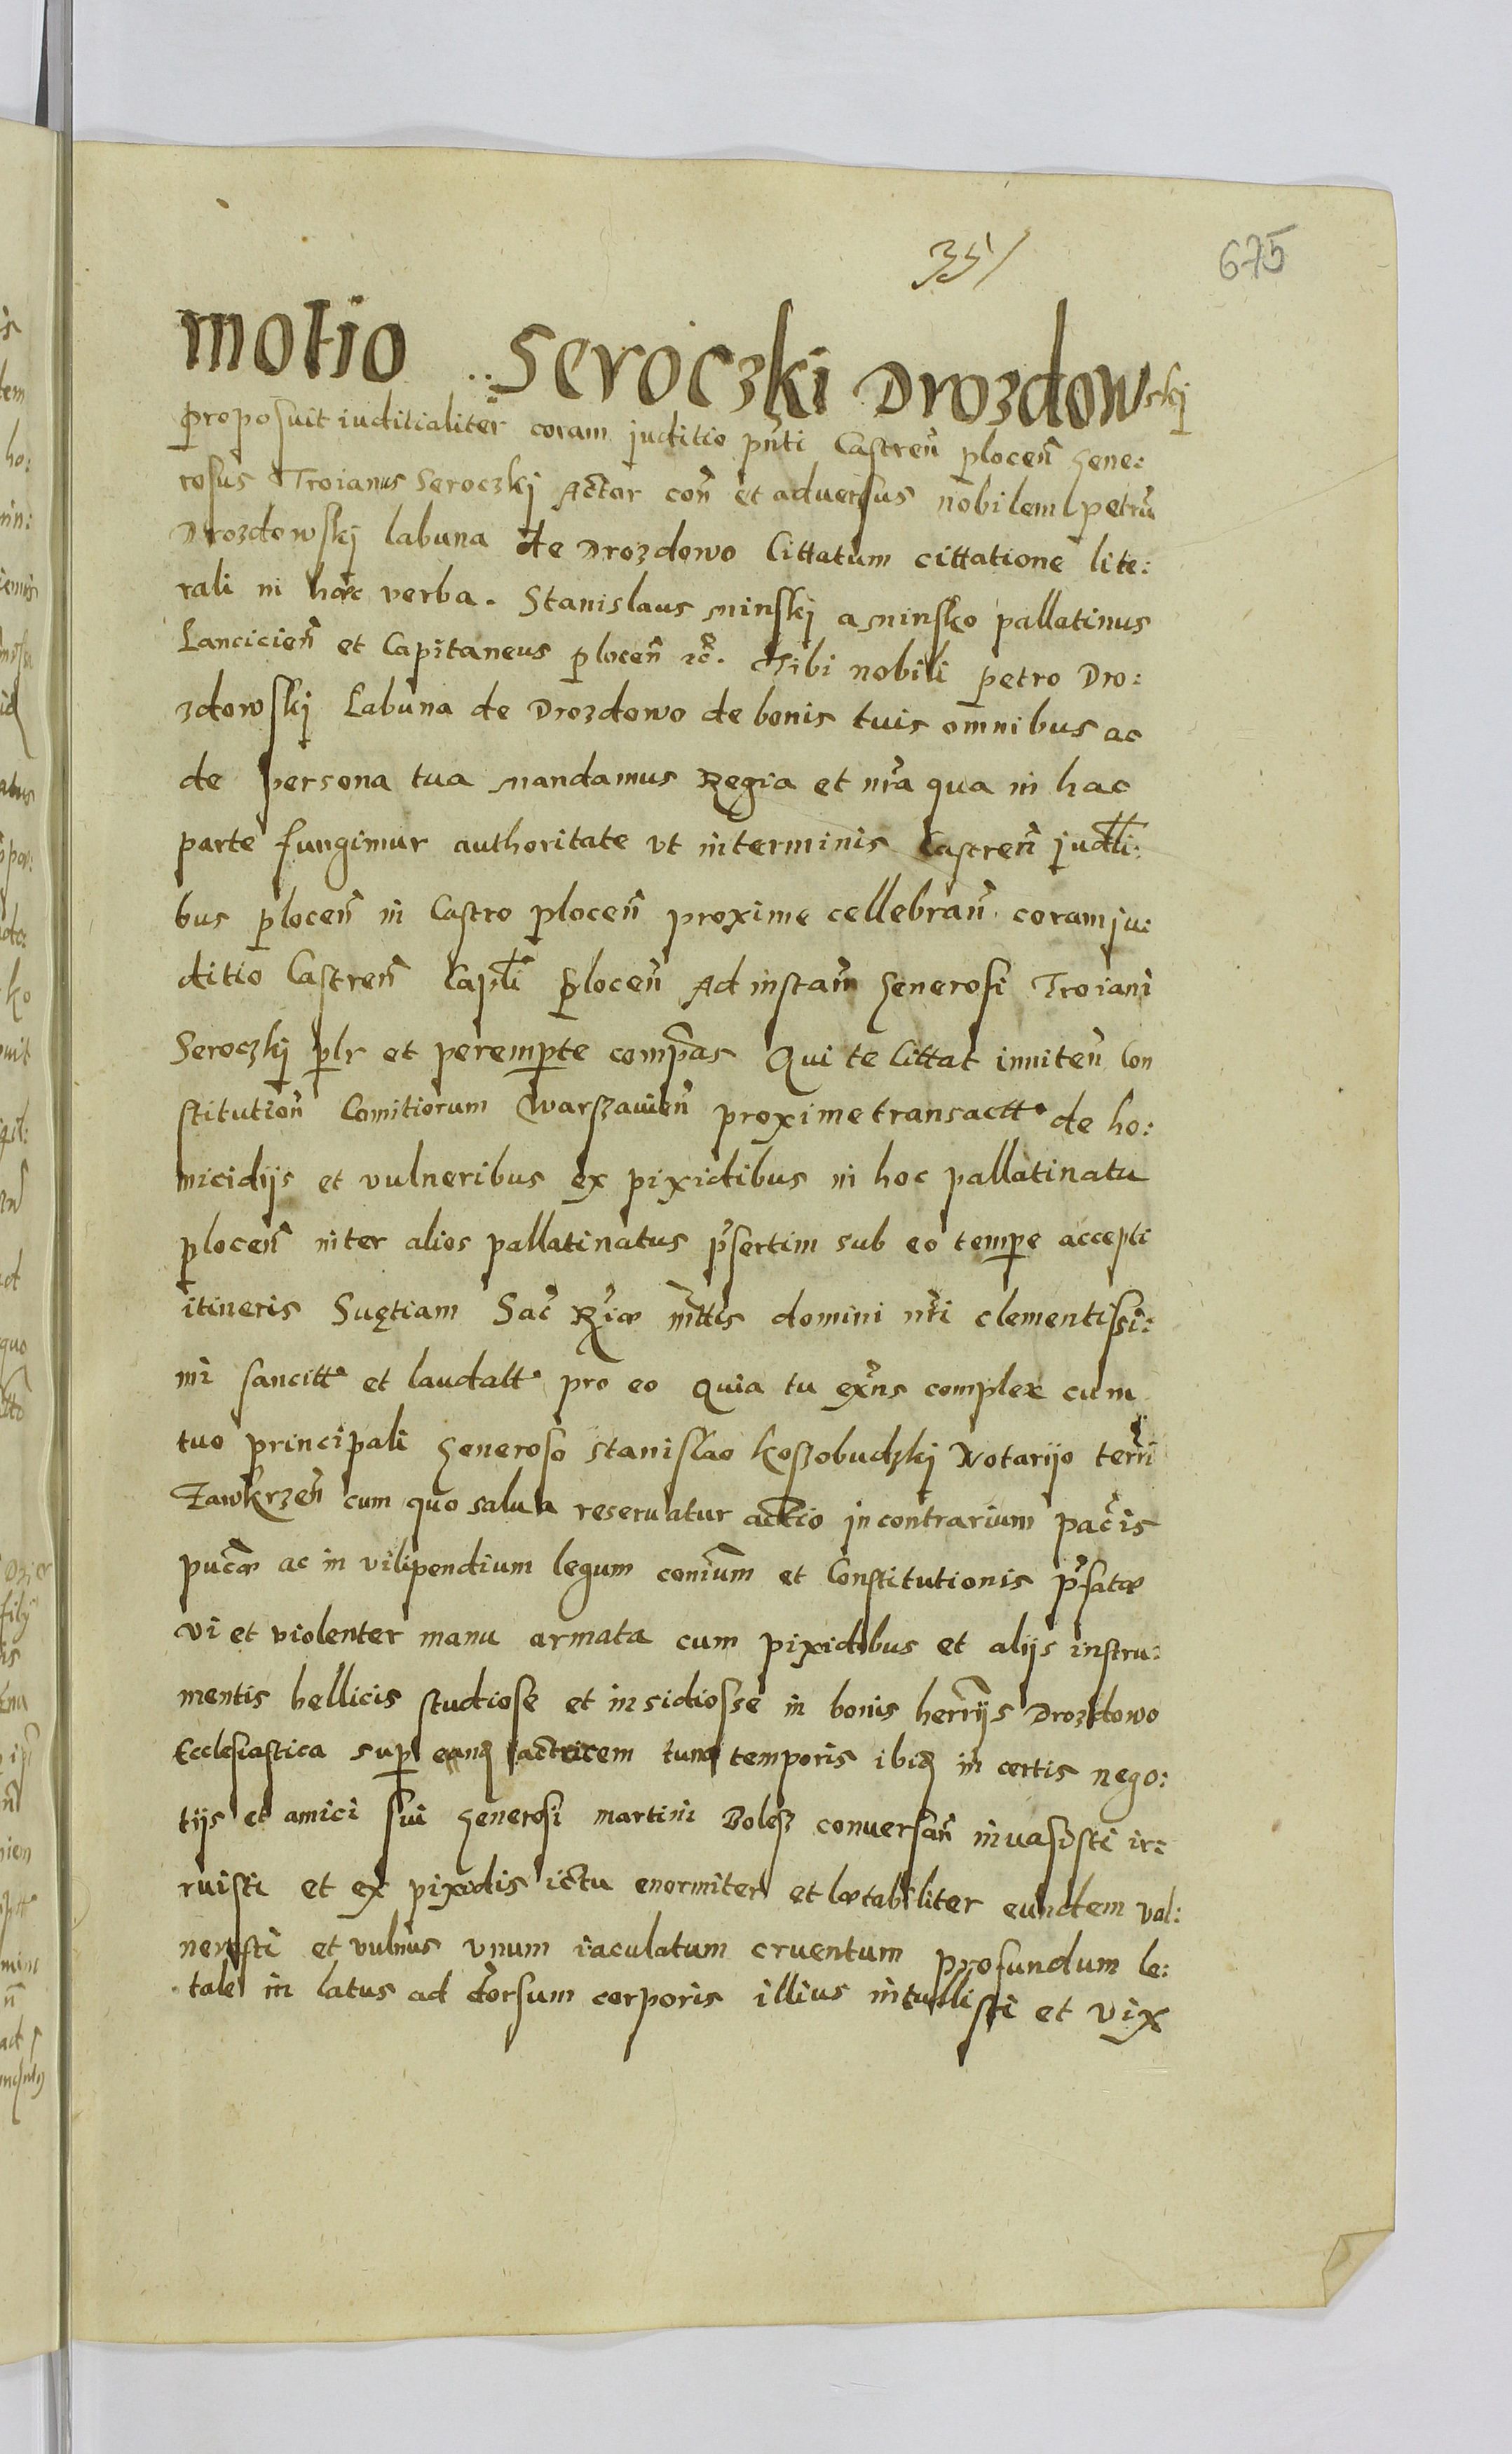 351
675
Motio Seroczki Drozdowskj
proposuit iuditialiter coram juditio pñti Castreñ ploceñ Gene:
rosus Troianus Seroczkj Actor coñ et adversus nobilem petrũ
Drozdowskj labuna de Drozdowo Cittatum cittatione lite:
rali in hæc verba. Stanislaus Minskj a Minsko pallatinus
Lancicieñ et Capitaneus ploceñ &c̃. Tibi nobili petro Dro:
zdowskj Labuna de Drozdowo de bonis tuis omnibus ac
de persona tua Mandamus Regia et nr̃a qua in hac
parte fungimur authoritate vt in terminis Castreñ judll̃i:
bus ploceñ in Castro ploceñ proxime cellebrañ coram ju:
ditio Castreñ Capll̃i Ploceñ Ad instañ Generosi Troiani
Seroczkj plr et perempte compas Qui te Cittat inniteñ Con
stitutioñ Comitiorum Warszavieñ proxime transactt. de ho:
micidijs et vulneribus ex pixidibus in hoc pallatinatu
ploceñ inter alios pallatinatus pr̃sertim sub eo tempe accepti
itineris Suętiam Sac̃ Rg̃iæ mttis domini nr̃i clementissi:
mi sancitt. et laudatt. pro eo Quia tu exñs complex cum
tuo principali Generoso Stanislao Koszobudzkj Notarijo terri
Zawkrzeñ cum quo salua reseruatur actio in contrarium pac̃is
puc̃æ ac in vilipendium legum conĩum et Constitutionis pr̃fatæ
vi et violenter manu armata cum pixidibus et alijs instru:
mentis bellicis studiose et insidiosse in bonis herrijs Drozdowo
Ecclesiastica super eanđ actricem tunc temporis ibiđ in certis nego:
tijs et amici sui Generosi Martini Bolesz conversañ invasisti ir:
ruisti et ex pixidis ictu enormiter et lætabiliter eundem vul:
nerasti et vulnus vnum iaculatum cruentum profundum le:
tale in latus ad dorsum corporis illius intullisti et vix